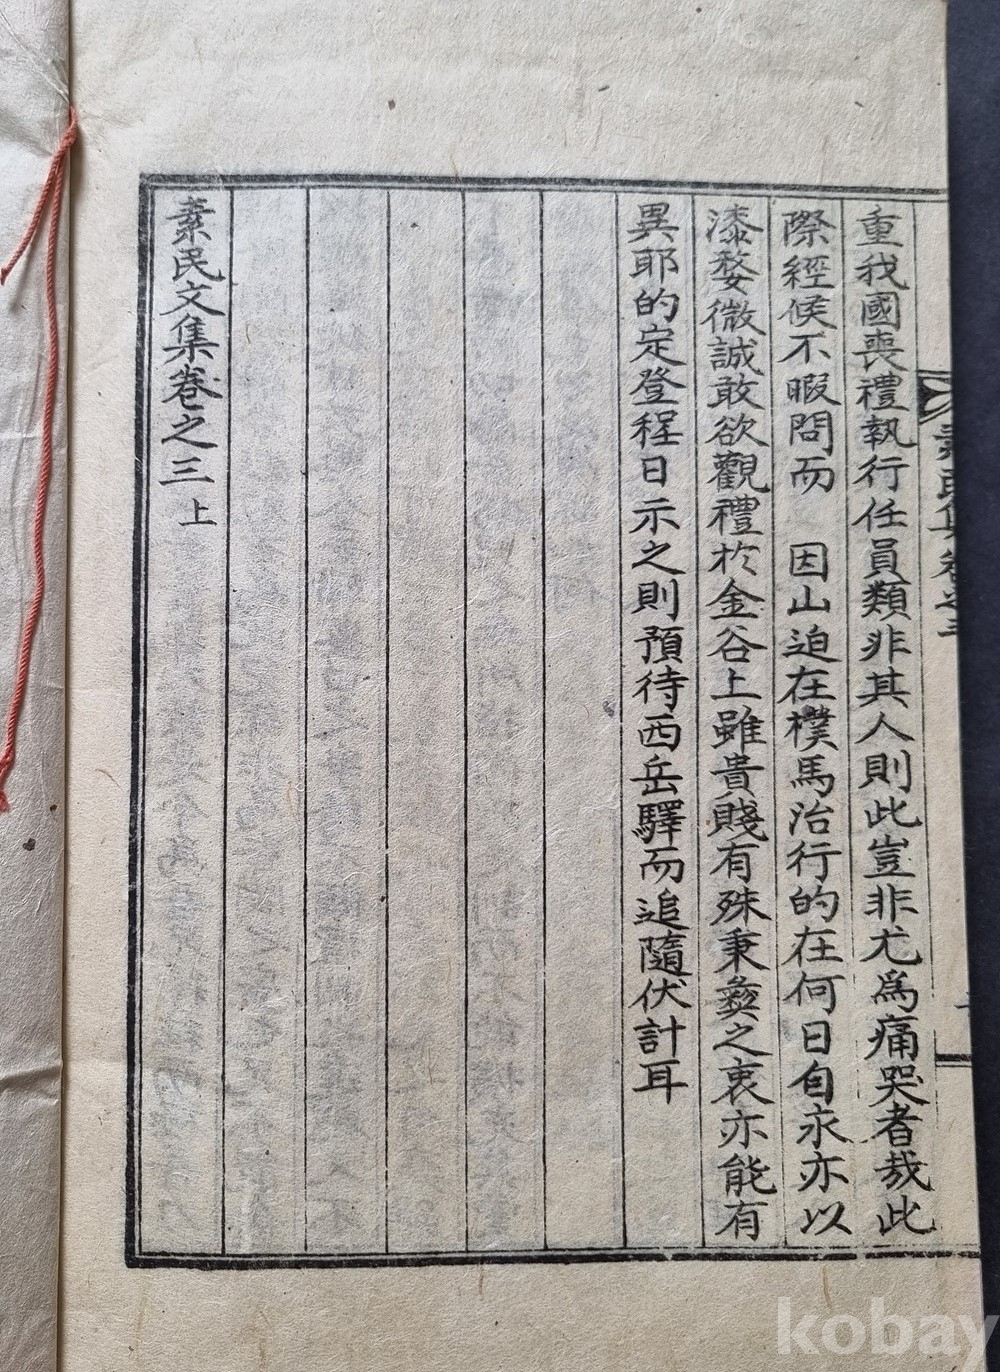 重我國喪禮執行任員類非其人則此豈非尤爲痛哭者哉此
際經候不暇問而 因山迫在樸馬治行的在何日自永亦以
漆婺微誠敢欲觀禮於金谷上雖貴賤有殊秉彝之衷亦能有
異耶的定登程日示之則預待西岳驛而追隨伏計耳
素民文集卷之三 上
kobay